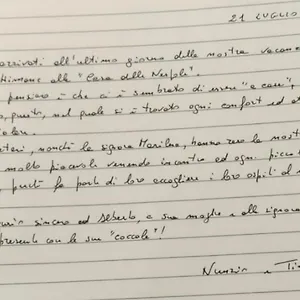 21 LUGLIO
arrivati all'ultimo giorno della nostra vacan
alle "Casa delle Nespole".
pensiero è che ci è sembrato di essere "a casa",
, questo, nel quale si è trovato ogni confort ed
, nonché la signora Marilena, hanno reso la nost
molto piacevoli venendo incontro ed ogni picc
, perché fa parte di loro accogliere i loro ospiti al
sincero ad Alberto, a sua moglie e alla signora
presenti con le sue "coccole"!
Nunzia e Ti